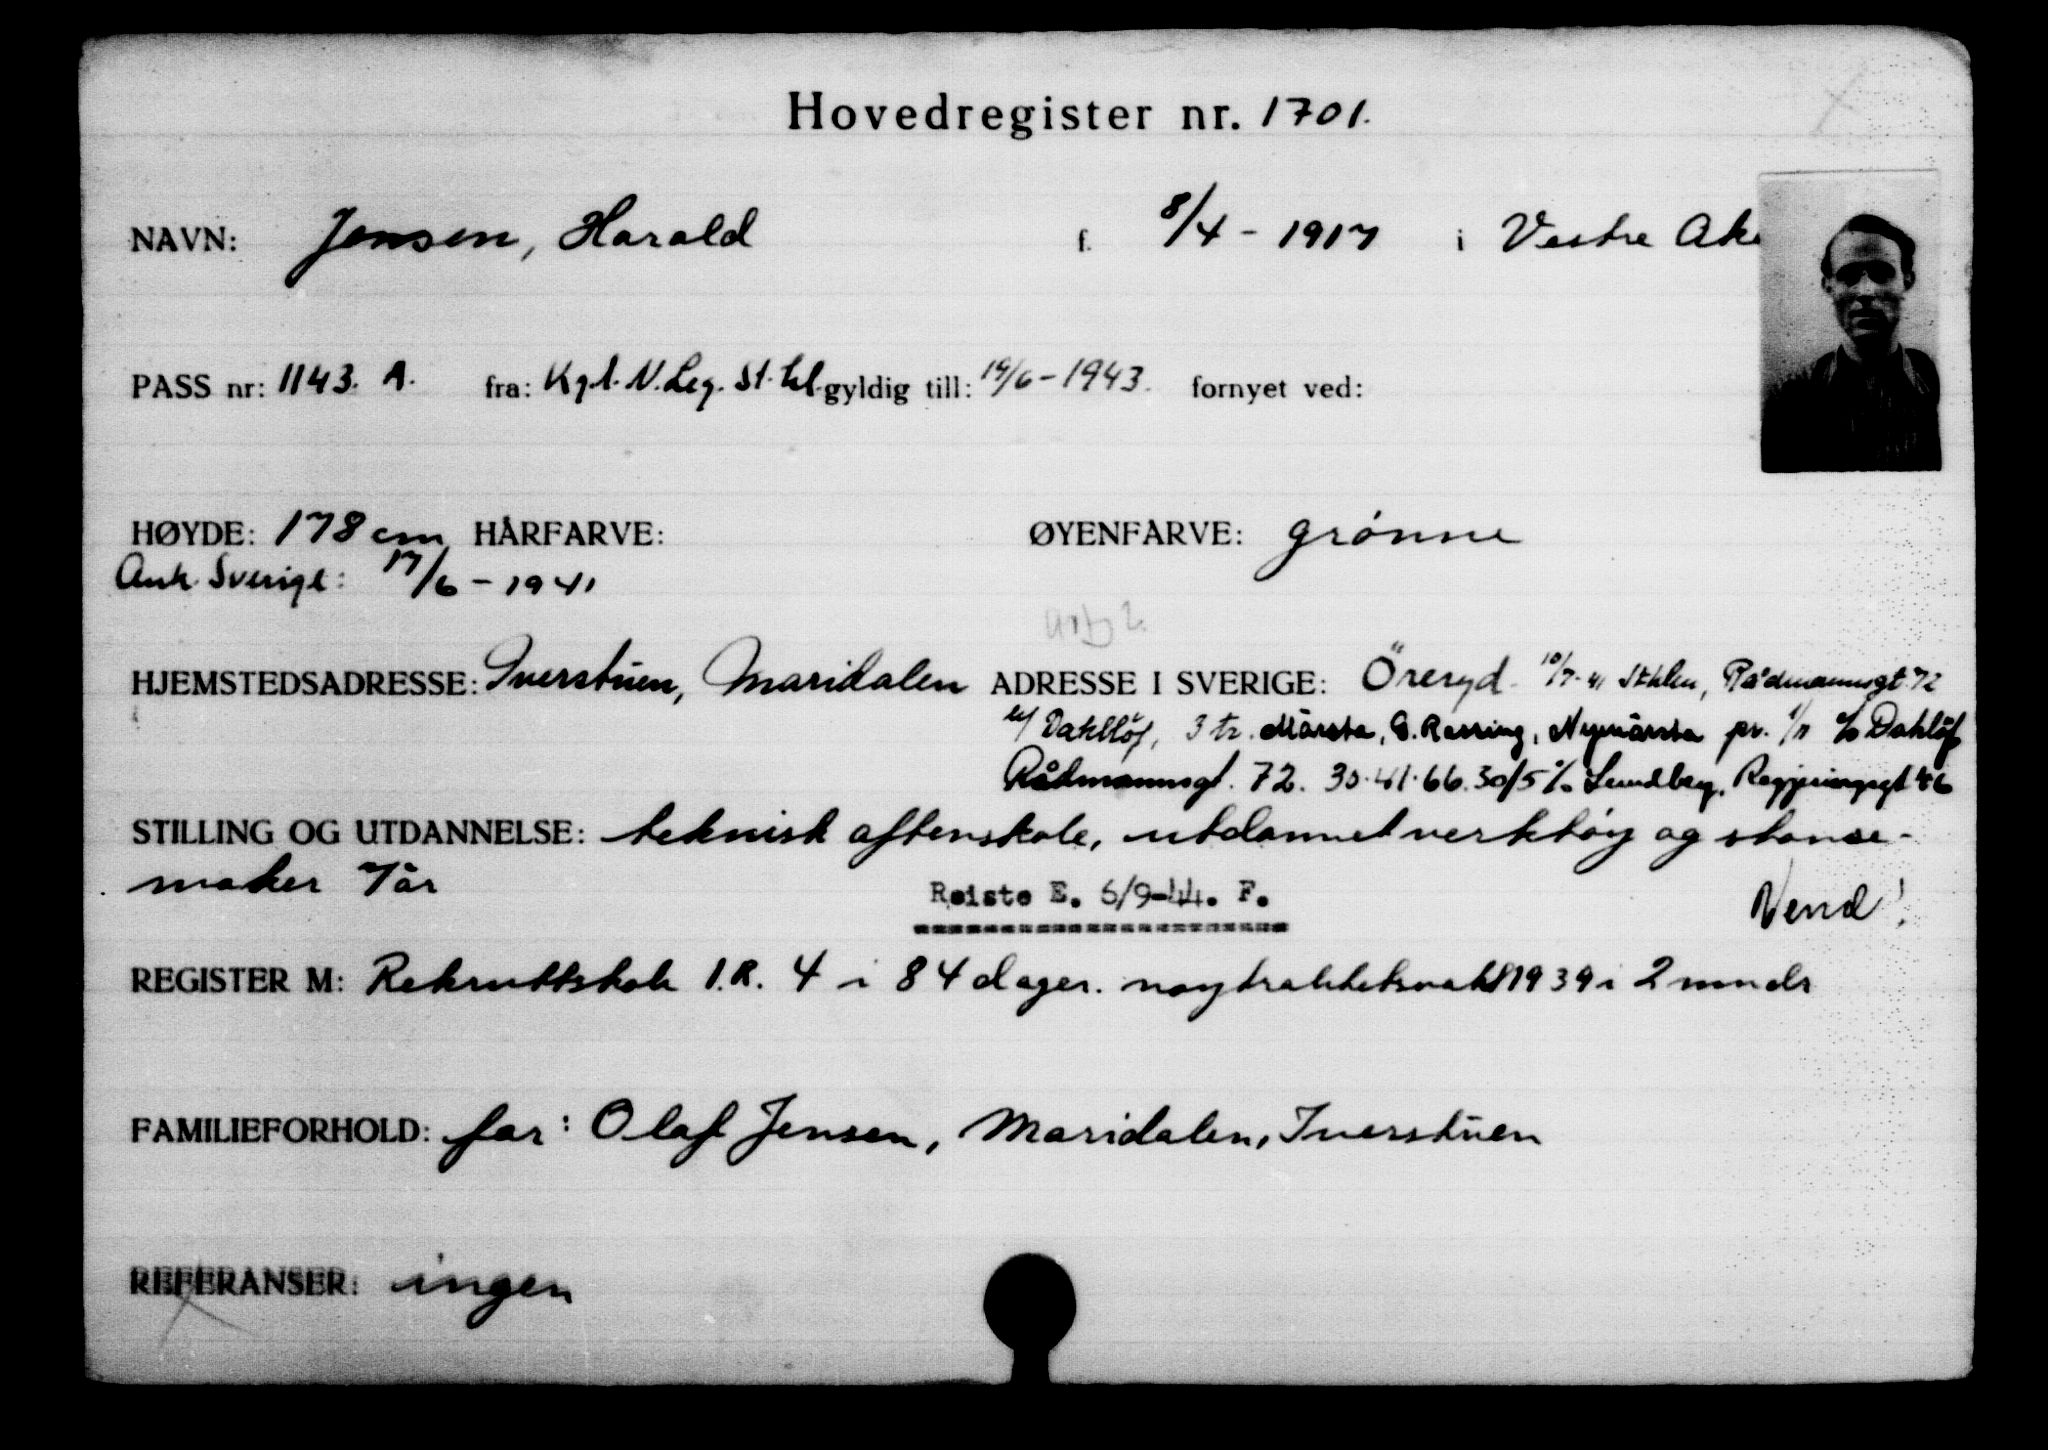 Hovedregister nr. 1701.
NAVN: Jensen, Harald f. 8/4 - 1917 i Vestre Ake
PASS nr: 1143. A. fra: Kgl. N. Leg. St. hl. gyldig till: 19/6 - 1943. fornyet ved:
HØYDE: 178 cm HÅRFARVE: ØYENFARVE: grønne
Ank. Sverige: 17/6 - 1941
HJEMSTEDSADRESSE: Iverstuen, Maridalen ADRESSE I SVERIGE: Öreryd 10/7-41 Sthlm, Rådmannsgt. 72
c/ Dahllöf, 3 tr. Märsta, Nymärsta pr. 1/1 c/o Dahlöf
Rådmannsgt. 72. 30.41.66. 30/5 c/o Lundberg, Regjeringsgt 46
STILLING OG UTDANNELSE: teknisk aftenskole, utdannet verktøy og stanse-
maker 7 år
Reiste E. 5/9-44. F.
Vend!
REGISTER M: Rekruttskole I.R. 4 i 84 dager. nøytralitetsvakt 1939 i 2 mndr
FAMILIEFORHOLD: far: Olaf Jensen, Maridalen, Iverstuen
REFERANSER: ingen